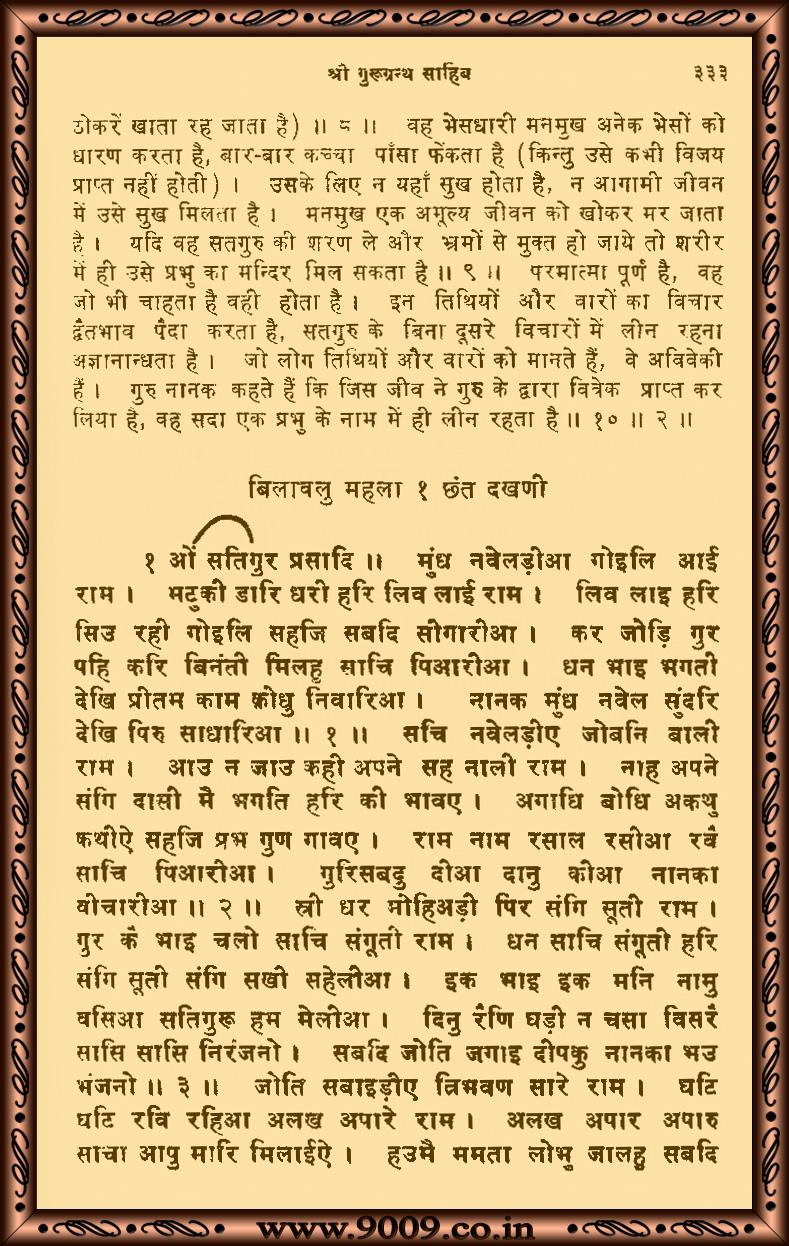 श्री गुरूग्रन्थ साहिब ३३३
ठोकरें खाता रह जाता है) ॥ ८ ॥ वह भेसधारी मनमुख अनेक भेसों को
धारण करता है, बार-बार कच्चा पाँसा फेंकता है (किन्तु उसे कभी विजय
प्राप्त नहीं होती) । उसके लिए न यहाँ सुख होता है, न आगामी जीवन
में उसे सुख मिलता है । मनमुख एक अमूल्य जीवन को खोकर मर जाता
है । यदि वह सतगुरु की शरण ले और भ्रमों से मुक्त हो जाये तो शरीर
में ही उसे प्रभु का मन्दिर मिल सकता है ॥ ९ ॥ परमात्मा पूर्ण है, वह
जो भी चाहता है वही होता है । इन तिथियों और वारों का विचार
द्वैतभाव पैदा करता है, सतगुरु के बिना दूसरे विचारों में लीन रहना
अज्ञानान्धता है । जो लोग तिथियों और वारों को मानते हैं, वे अविवेकी
हैं । गुरु नानक कहते हैं कि जिस जीव ने गुरु के द्वारा विवेक प्राप्त कर
लिया है, वह सदा एक प्रभु के नाम में ही लीन रहता है ॥ १० ॥ २ ॥
बिलावलु महला १ छंत दखणी
१ ओं सतिगुर प्रसादि ॥ मुंध नवेलड़ीआ गोइलि आई
राम । मटुकी डारि धरी हरि लिव लाई राम । लिव लाइ हरि
सिउ रही गोइलि सहजि सबदि सीगारीआ । कर जोड़ि गुर
पहि करि बिनंती मिलहु साचि पिआरीआ । धन भाइ भगती
देखि प्रीतम काम क्रोधु निवारिआ । नानक मुंध नवेल सुंदरि
देखि पिरु साधारिआ ॥ १ ॥ सचि नवेलड़ीए जोबनि बाली
राम । आउ न जाउ कही अपने सह नाली राम । नाह अपने
संगि दासी मै भगति हरि की भावए । अगाधि बोधि अकथु
कथीऐ सहजि प्रभ गुण गावए । राम नाम रसाल रसीआ रवै
साचि पिआरीआ । गुरिसबदु दीआ दानु कीआ नानका
वीचारीआ ॥ २ ॥ स्री धर मोहिअड़ी पिर संगि सूती राम ।
गुर कै भाइ चलो साचि संगूती राम । धन साचि संगूती हरि
संगि सूती संगि सखी सहेलीआ । इक भाइ इक मनि नामु
वसिआ सतिगुरू हम मेलीआ । दिनु रैणि घड़ी न चसा विसरै
सासि सासि निरंजनो । सबदि जोति जगाइ दीपकु नानका भउ
भंजनो ॥ ३ ॥ जोति सबाइड़ीए त्रिभवण सारे राम । घटि
घटि रवि रहिआ अलख अपारे राम । अलख अपार अपारु
साचा आपु मारि मिलाईऐ । हउमै ममता लोभु जालहु सबदि
www.9009.co.in